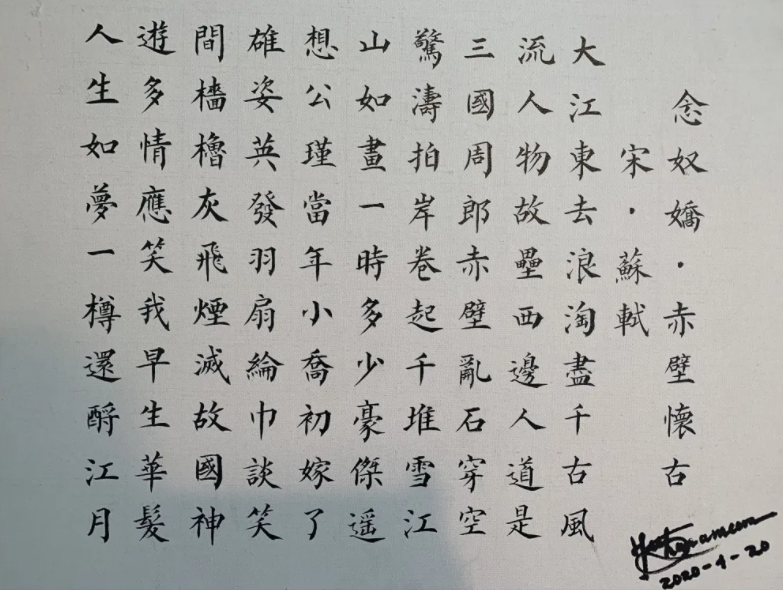 念奴嬌·赤壁懷古
宋·蘇軾
大江東去浪淘盡千古風
流人物故壘西邊人道是
三國周郎赤壁亂石穿空
驚濤拍岸卷起千堆雪江
山如畫一時多少豪傑遥
想公瑾當年小喬初嫁了
雄姿英發羽扇綸巾談笑
間檣櫓灰飛煙滅故國神
遊多情應笑我早生華髮
人生如夢一樽還酹江月
2020-4-20